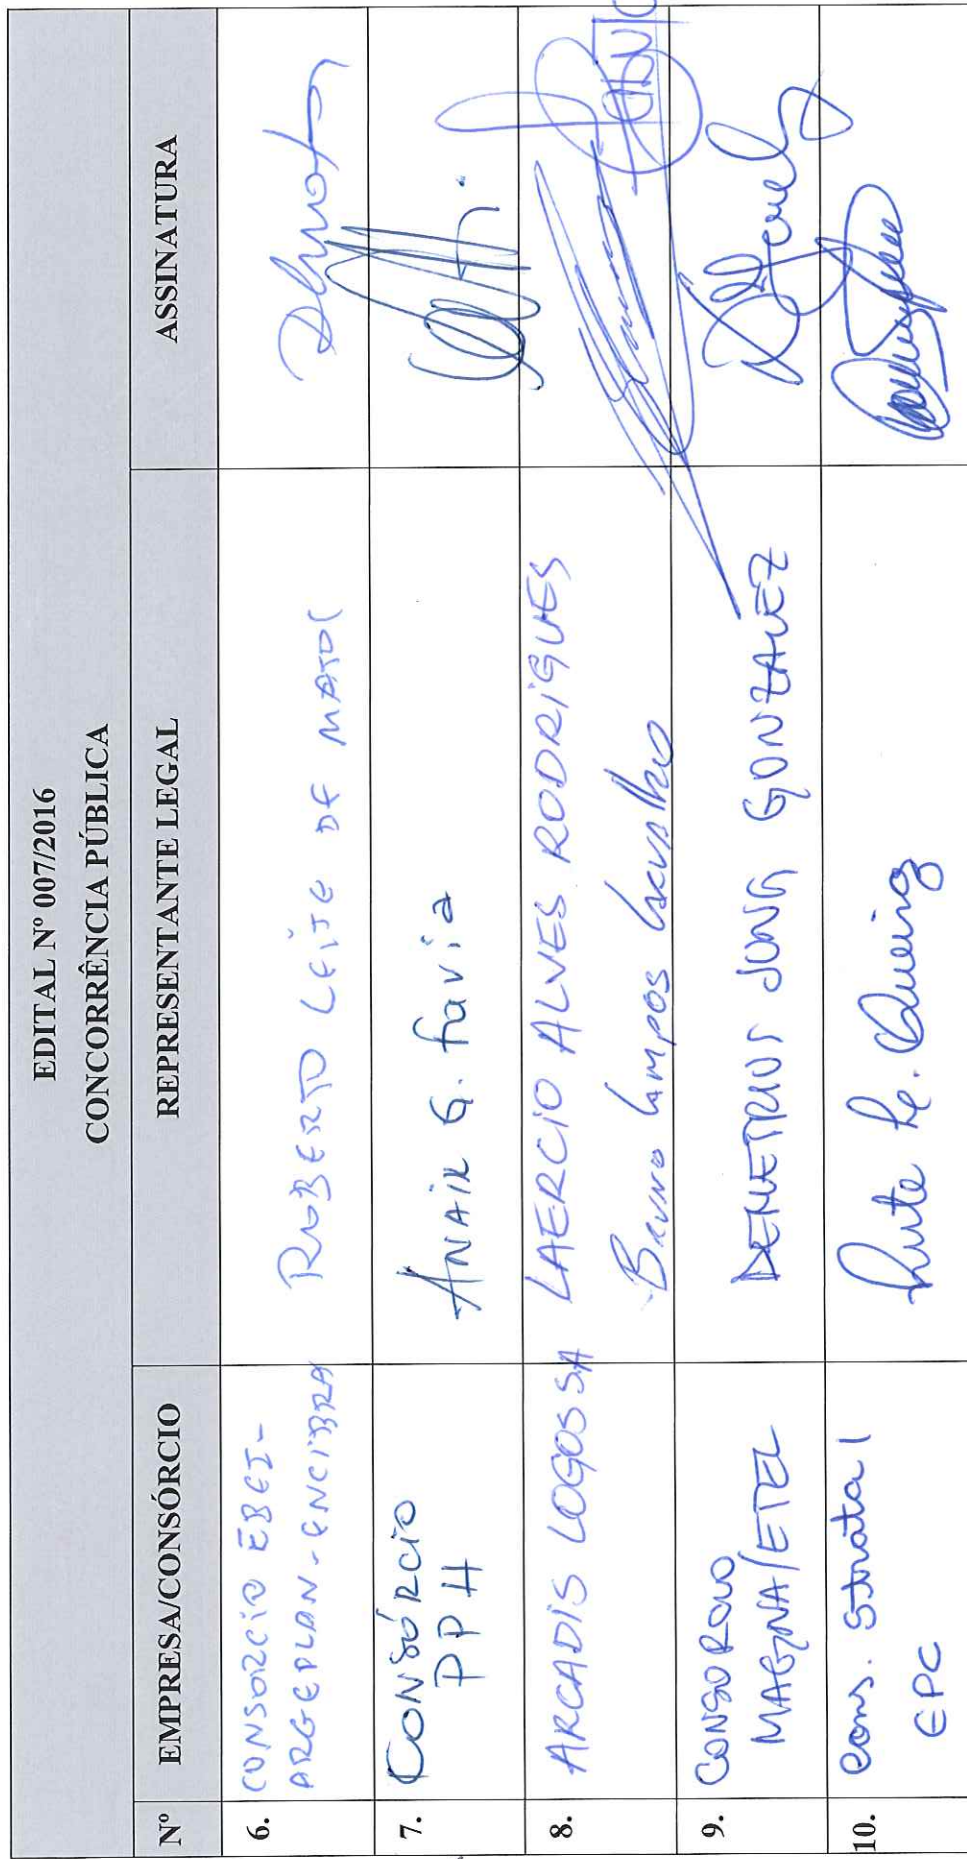 EDITAL Nº 007/2016
CONCORRÊNCIA PÚBLICA
Nº EMPRESA/CONSÓRCIO REPRESENTANTE LEGAL ASSINATURA
6. CONSORCIO EBEI-
ARGEPLAN-ENCIBRA ROBERTO LEITE DE MATOS
7. CONSÓRCIO
PPH ANAIR G. Faria
8. ARCADIS LOGOS SA LAERCIO ALVES RODRIGUES
Bruno Campos Carvalho
9. CONSORCIO
MAGNA/ETEL DEMETRIUS JUNG GONZALEZ
10. Cons. Strata /
EPC Queiroz